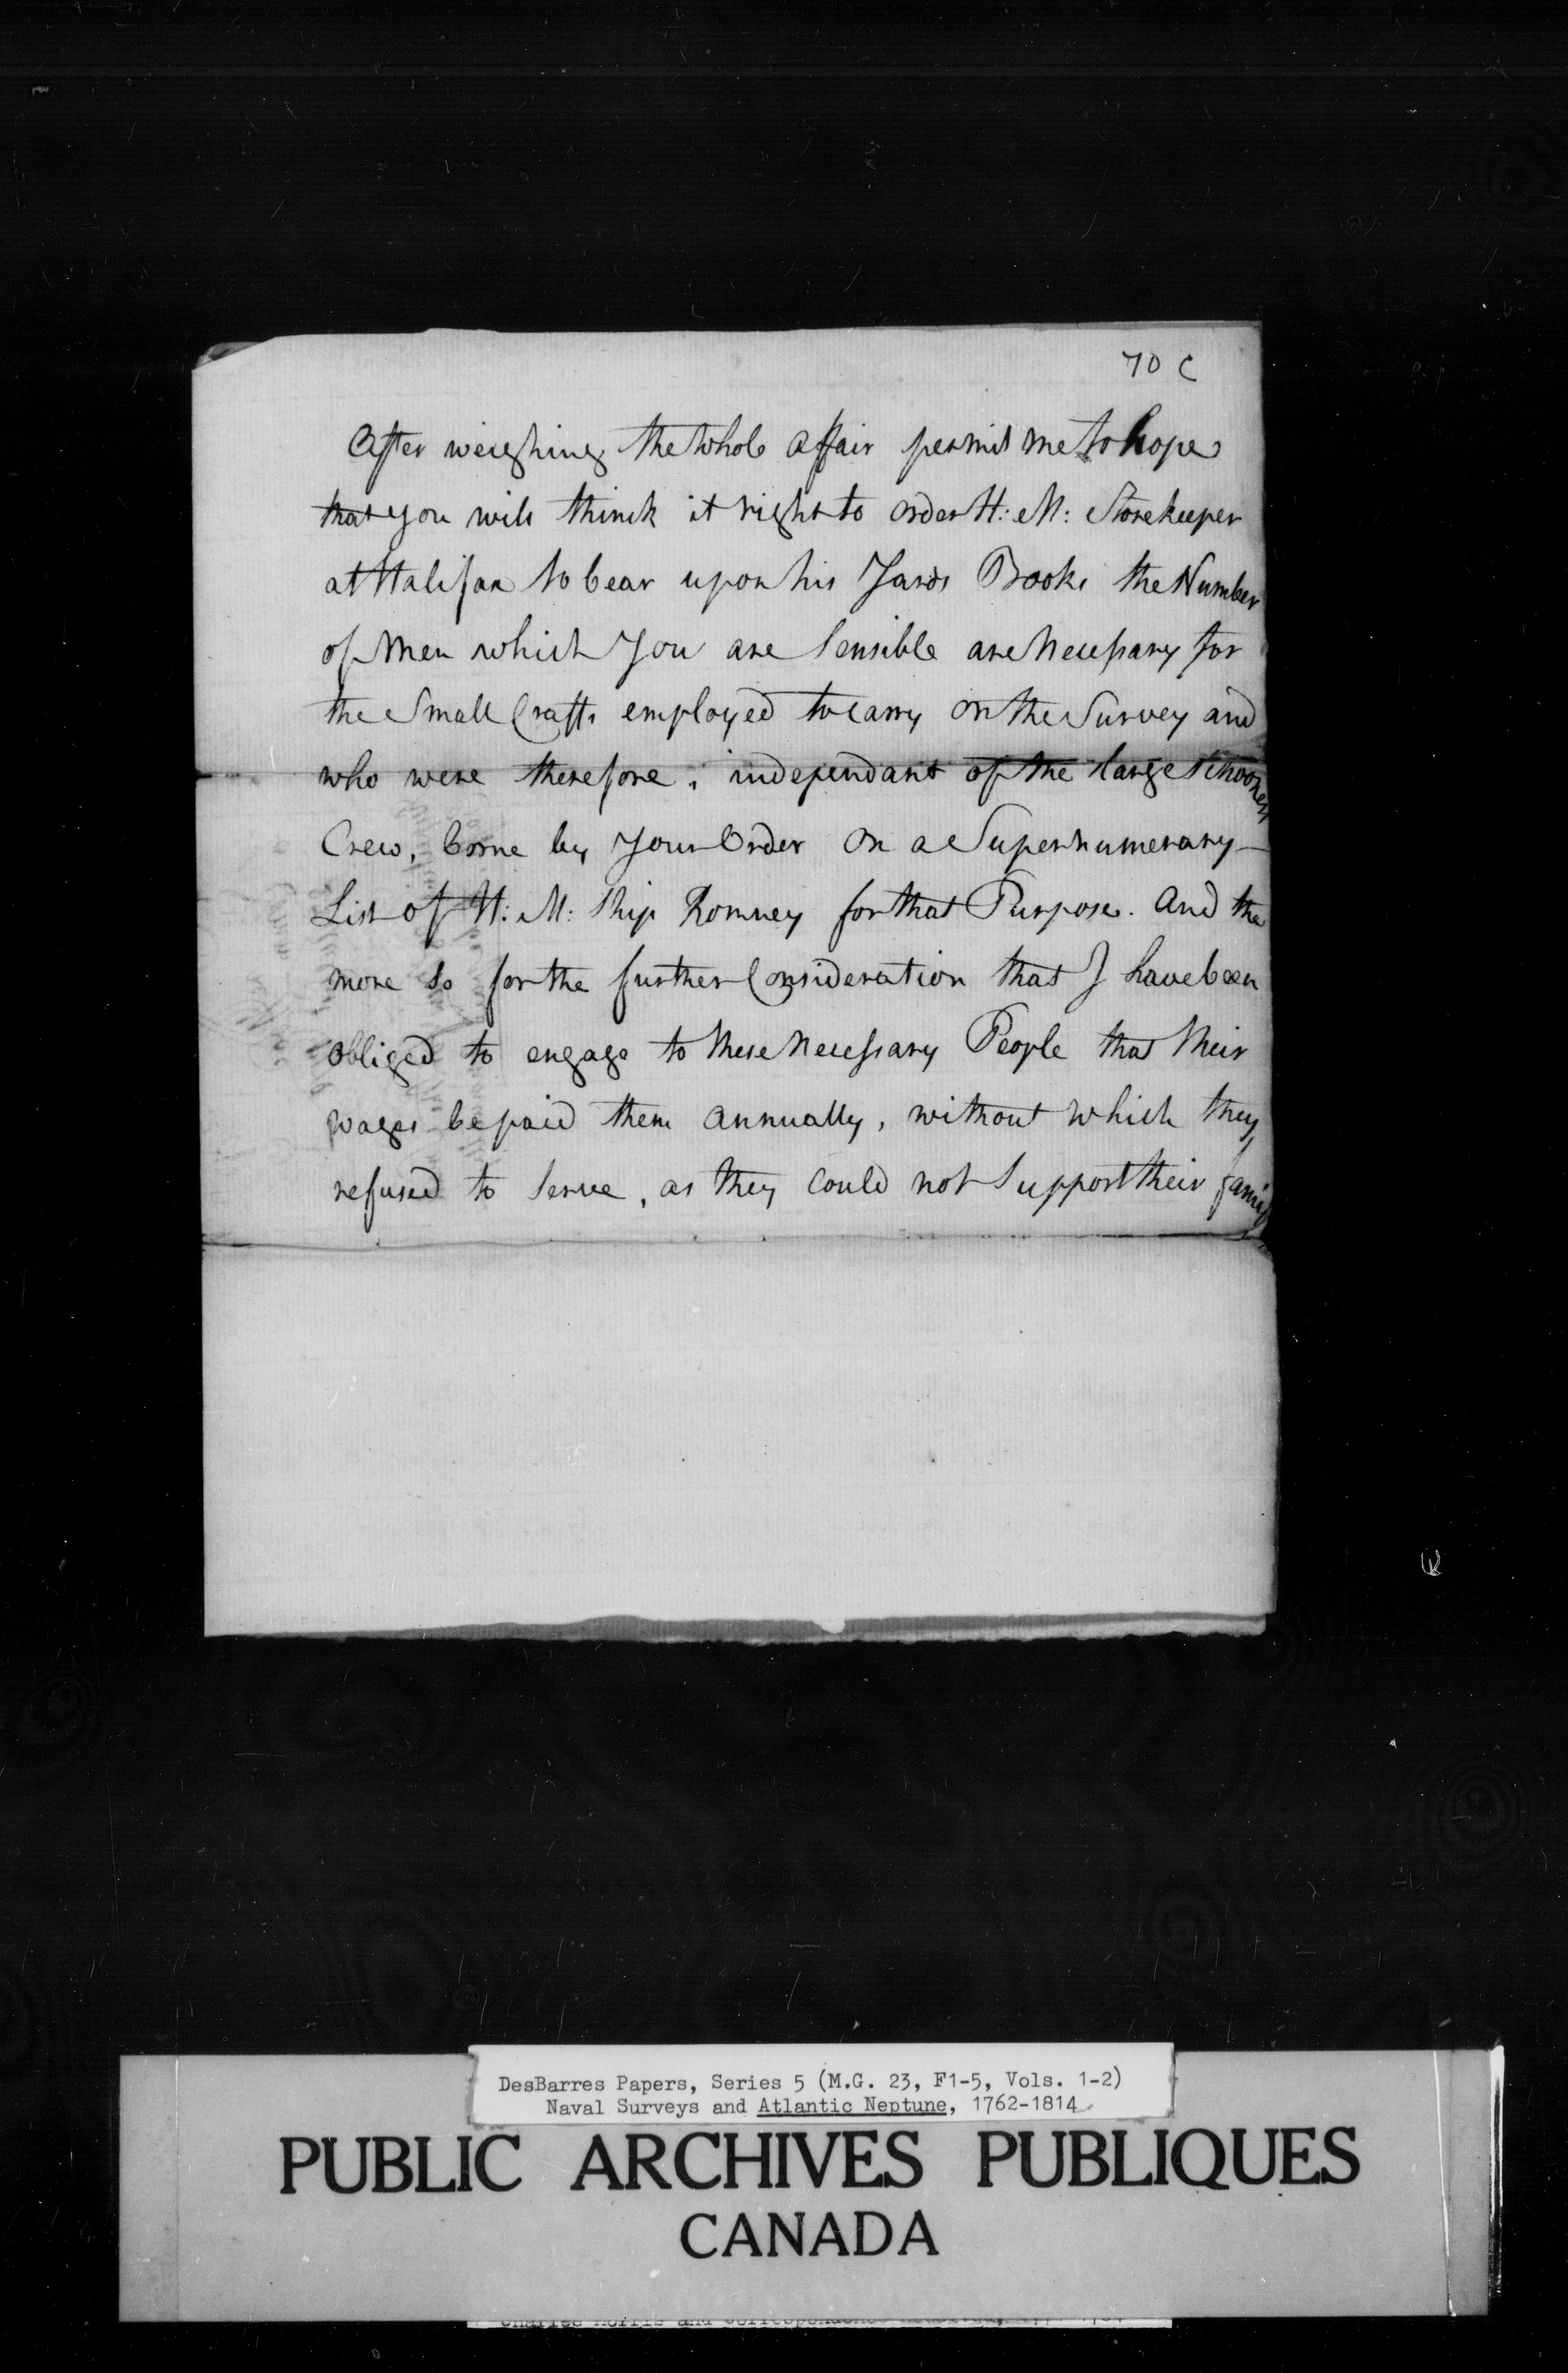 70 C
After weighing the whole affair permit me to hope
that you will think it right to order H: M: Storekeeper
at Halifax to bear upon his Yards Books the Number
of Men which You are Sensible are Necessary for
the Small Crafts employed to carry on the Survey and
who were therefore, independant of the large Schooners
Crew, borne by Your Order on a Supernumerary
List of H: M: Ship Romney for that Purpose. And the
more so for the further Consideration that I have been
obliged to engage to these Necessary People that their
wages be paid them annually, without which they
refused to Serve, as they could not Support their
DesBarres Papers, Series 5 (M.G. 23, F1-5, Vols. 1-2)
Naval Surveys and Atlantic Neptune, 1762-1814
PUBLIC ARCHIVES PUBLIQUES
CANADA